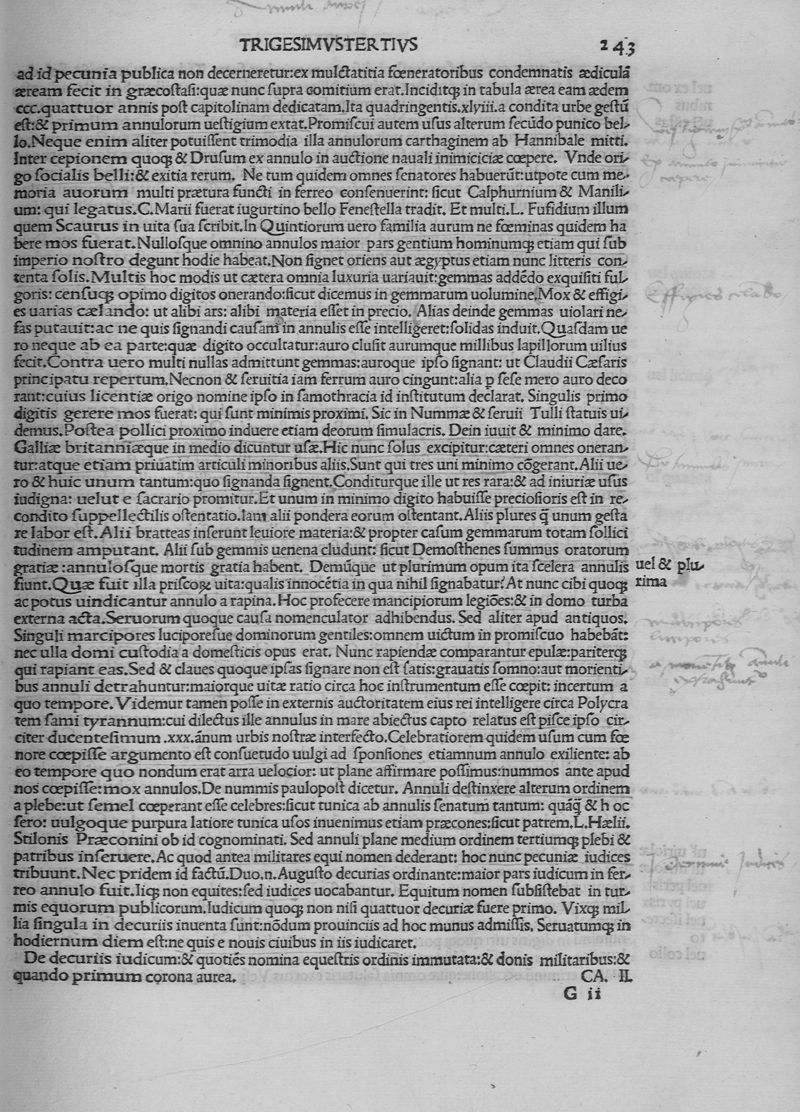 TRIGESIMVSTERTIVS 243
ad id pecunia publica non decerneretur:ex mulctatitia fœneratoribus condemnatis ædiculã
æream fecit in græcostasi:quæ nunc supra comitium erat.Inciditq; in tabula ærea eam ædem
ccc.quattuor annis post capitolinam dedicatam.Ita quadringentis.xlyiii.a condita urbe gestũ
est:& primum annulorum uestigium extat.Promiscui autem usus alterum secũdo punico bel-
lo.Neque enim aliter potuissent trimodia illa annulorum carthaginem ab Hannibale mitti.
Inter cepionem quoq; & Drusum ex annulo in auctione nauali inimiciciæ cœpere. Vnde ori-
go socialis belli:& exitia rerum. Ne tum quidem omnes senatores habuerũt:utpote cum me-
moria auorum multi prætura functi in ferreo consenuerint: sicut Calphurnium & Manili-
um: qui legatus.C.Marii fuerat iugurtino bello Fenestella tradit. Et multi.L. Fufidium illum
quem Scaurus in uita sua scribit.In Quintiorum uero familia aurum ne fœminas quidem ha
bere mos fuerat.Nullosque omnino annulos maior pars gentium hominumq; etiam qui sub
imperio nostro degunt hodie habeat.Non signet oriens aut ægyptus etiam nunc litteris con-
tenta solis.Multis hoc modis ut cætera omnia luxuria uariauit:gemmas addẽdo exquisiti ful-
goris: censuq; opimo digitos onerando:sicut dicemus in gemmarum uolumine.Mox & effigi-
es uarias cælando: ut alibi ars: alibi materia esset in precio. Alias deinde gemmas uiolari ne-
fas putauit:ac ne quis signandi causam in annulis esse intelligeret:solidas induit.Quasdam ue
ro neque ab ea parte:quæ digito occultatur:auro clusit aurumque millibus lapillorum uilius
fecit.Contra uero multi nullas admittunt gemmas:auroque ipso signant: ut Claudii Cæsaris
principatu repertum.Necnon & seruitia iam ferrum auro cingunt:alia p sese mero auro deco
rant:cuius licentiæ origo nomine ipso in samothracia id institutum declarat. Singulis primo
digitis gerere mos fuerat: qui sunt minimis proximi. Sic in Nummæ & seruii Tulli statuis ui-
demus.Postea pollici proximo induere etiam deorum simulacris. Dein iuuit & minimo dare.
Galliæ britanniæque in medio dicuntur usæ.Hic nunc solus excipitur:cæteri omnes oneran-
tur:atque etiam priuatim articuli minoribus aliis.Sunt qui tres uni minimo cõgerant.Alii ue-
ro & huic unum tantum:quo signanda signent.Conditurque ille ut res rara:& ad iniuriæ usus
iudigna: uelut e sacrario promitur.Et unum in minimo digito habuisse preciosioris est in re-
condito suppellectilis ostentatio.Iam alii pondera eorum ostentant.Aliis plures q̃ unum gesta
re labor est.Alii bratteas inferunt leuiore materia:& propter casum gemmarum totam sollici
tudinem amputant. Alii sub gemmis uenena cludunt: sicut Demosthenes summus oratorum
gratiæ :annulosque mortis gratia habent. Demũque ut plurimum opum ita scelera annulis
uel & plu-
fiunt.Quæ fuit illa priscoꝝ uita:qualis innocẽtia in qua nihil signabatur?At nunc cibi quoq;
rima
ac potus uindicantur annulo a rapina.Hoc profecere mancipiorum legiões:& in domo turba
externa acta.Seruorum quoque causa nomenculator adhibendus. Sed aliter apud antiquos.
Singuli marcipores luciporesue dominorum gentiles:omnem uictum in promiscuo habebãt:
nec ulla domi custodia a domesticis opus erat. Nunc rapiendæ comparantur epulæ:pariterq;
qui rapiant eas.Sed & claues quoque ipsas signare non est satis:grauatis somno:aut morienti-
bus annuli detrahuntur:maiorque uitæ ratio circa hoc instrumentum esse cœpit: incertum a
quo tempore.Videmur tamen posse in externis auctoritatem eius rei intelligere circa Polycra
tem sami tyrannum:cui dilectus ille annulus in mare abiectus capto relatus est pisce ipso cir-
citer ducentesimum .xxx.ãnum urbis nostræ interfecto.Celebratiorem quidem usum cum fœ
nore cœpisse argumento est consuetudo uulgi ad sponsiones etiamnum annulo exiliente: ab
eo tempore quo nondum erat arra uelocior: ut plane affirmare possimus:nummos ante apud
nos cœpisse:mox annulos.De nummis paulopost dicetur. Annuli destinxere alterum ordinem
a plebe:ut semel cœperant esse celebres:sicut tunica ab annulis senatum tantum: quãq̃ & h oc
sero: uulgoque purpura latiore tunica usos inuenimus etiam præcones:sicut patrem.L.Hælii.
Stilonis Præconini ob id cognominati. Sed annuli plane medium ordinem tertiumq; plebi &
patribus inseruere.Ac quod antea militares equi nomen dederant: hoc nunc pecuniæ iudices
tribuunt.Nec pridem id factũ.Duo.n.Augusto decurias ordinante:maior pars iudicum in fer-
reo annulo fuit.Iiq; non equites:sed iudices uocabantur. Equitum nomen subsistebat in tur-
mis equorum publicorum.Iudicum quoq; non nisi quattuor decuriæ fuere primo. Vixq; mil-
lia singula in decuriis inuenta sunt:nõdum prouinciis ad hoc munus admissis. Seruatumq; in
hodiernum diem est:ne quis e nouis ciuibus in iis iudicaret.
De decuriis iudicum:& quotiẽs nomina equestris ordinis immutata:& donis militaribus:&
quando primum corona aurea. CA. II.
G ii